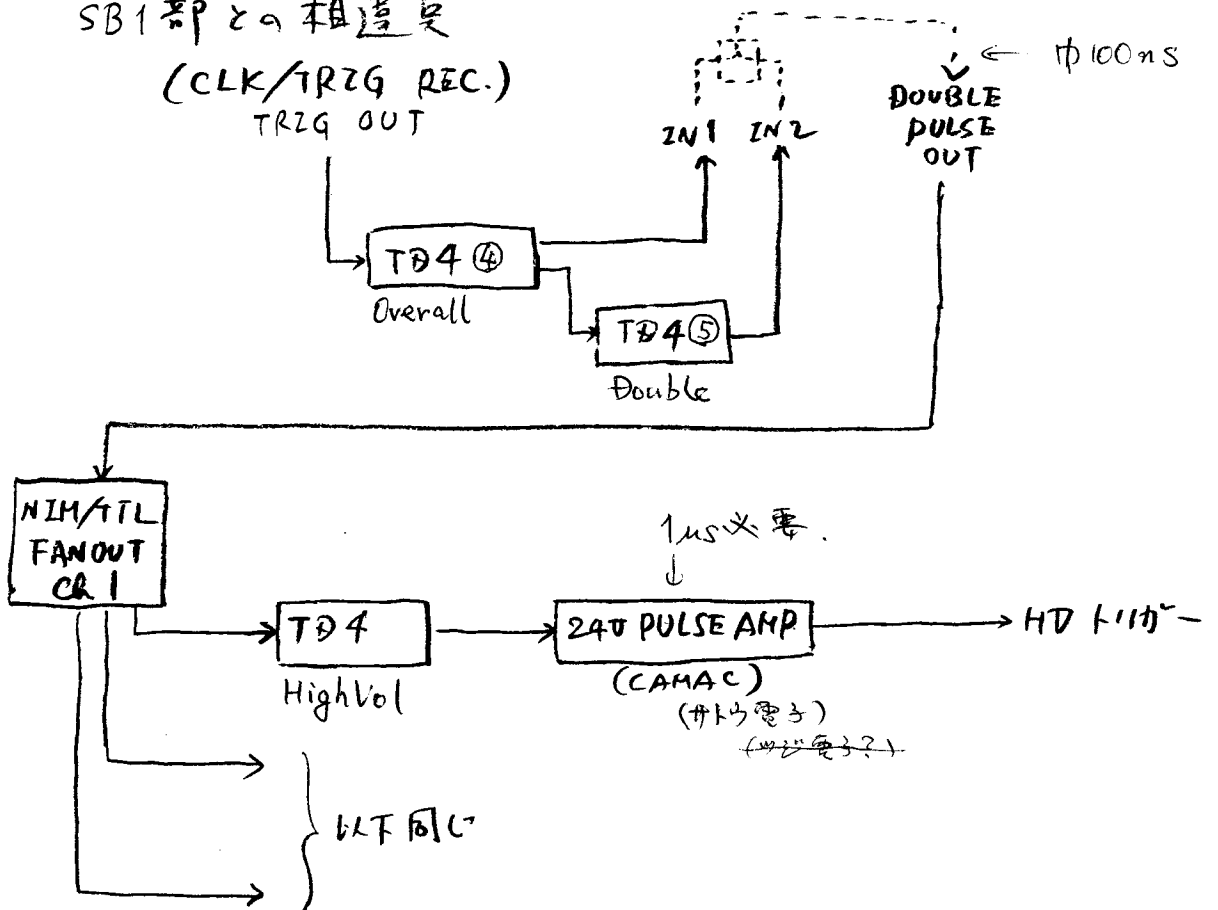 SB1部との相違点
(CLK/TRIG REC.)
TRIG OUT
IN1 IN2
DOUBLE
PULSE
OUT
巾100ns
TD4 ④
Overall
TD4 ⑤
Double
NIM/TTL
FANOUT
Ch 1
1μs必要.
TD4
HighVol
24V PULSE AMP
(CAMAC)
(サトウ電子)
(ツジ電子?)
HD トリガー
以下同じ